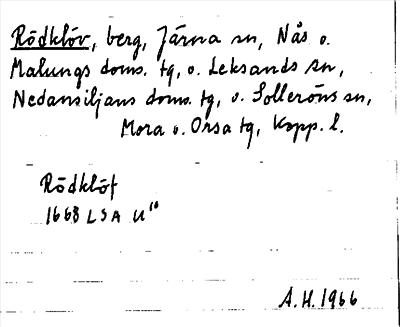 Rödklöv, berg, Järna sn, Nås o.
Malungs doms. tg, o. Leksands sn,
Nedansiljans doms. tg, o. Solleröns sn,
Mora o. Orsa tg, Kopp. l.
Rödklöf
1668 LSA U¹⁰
A.H. 1966